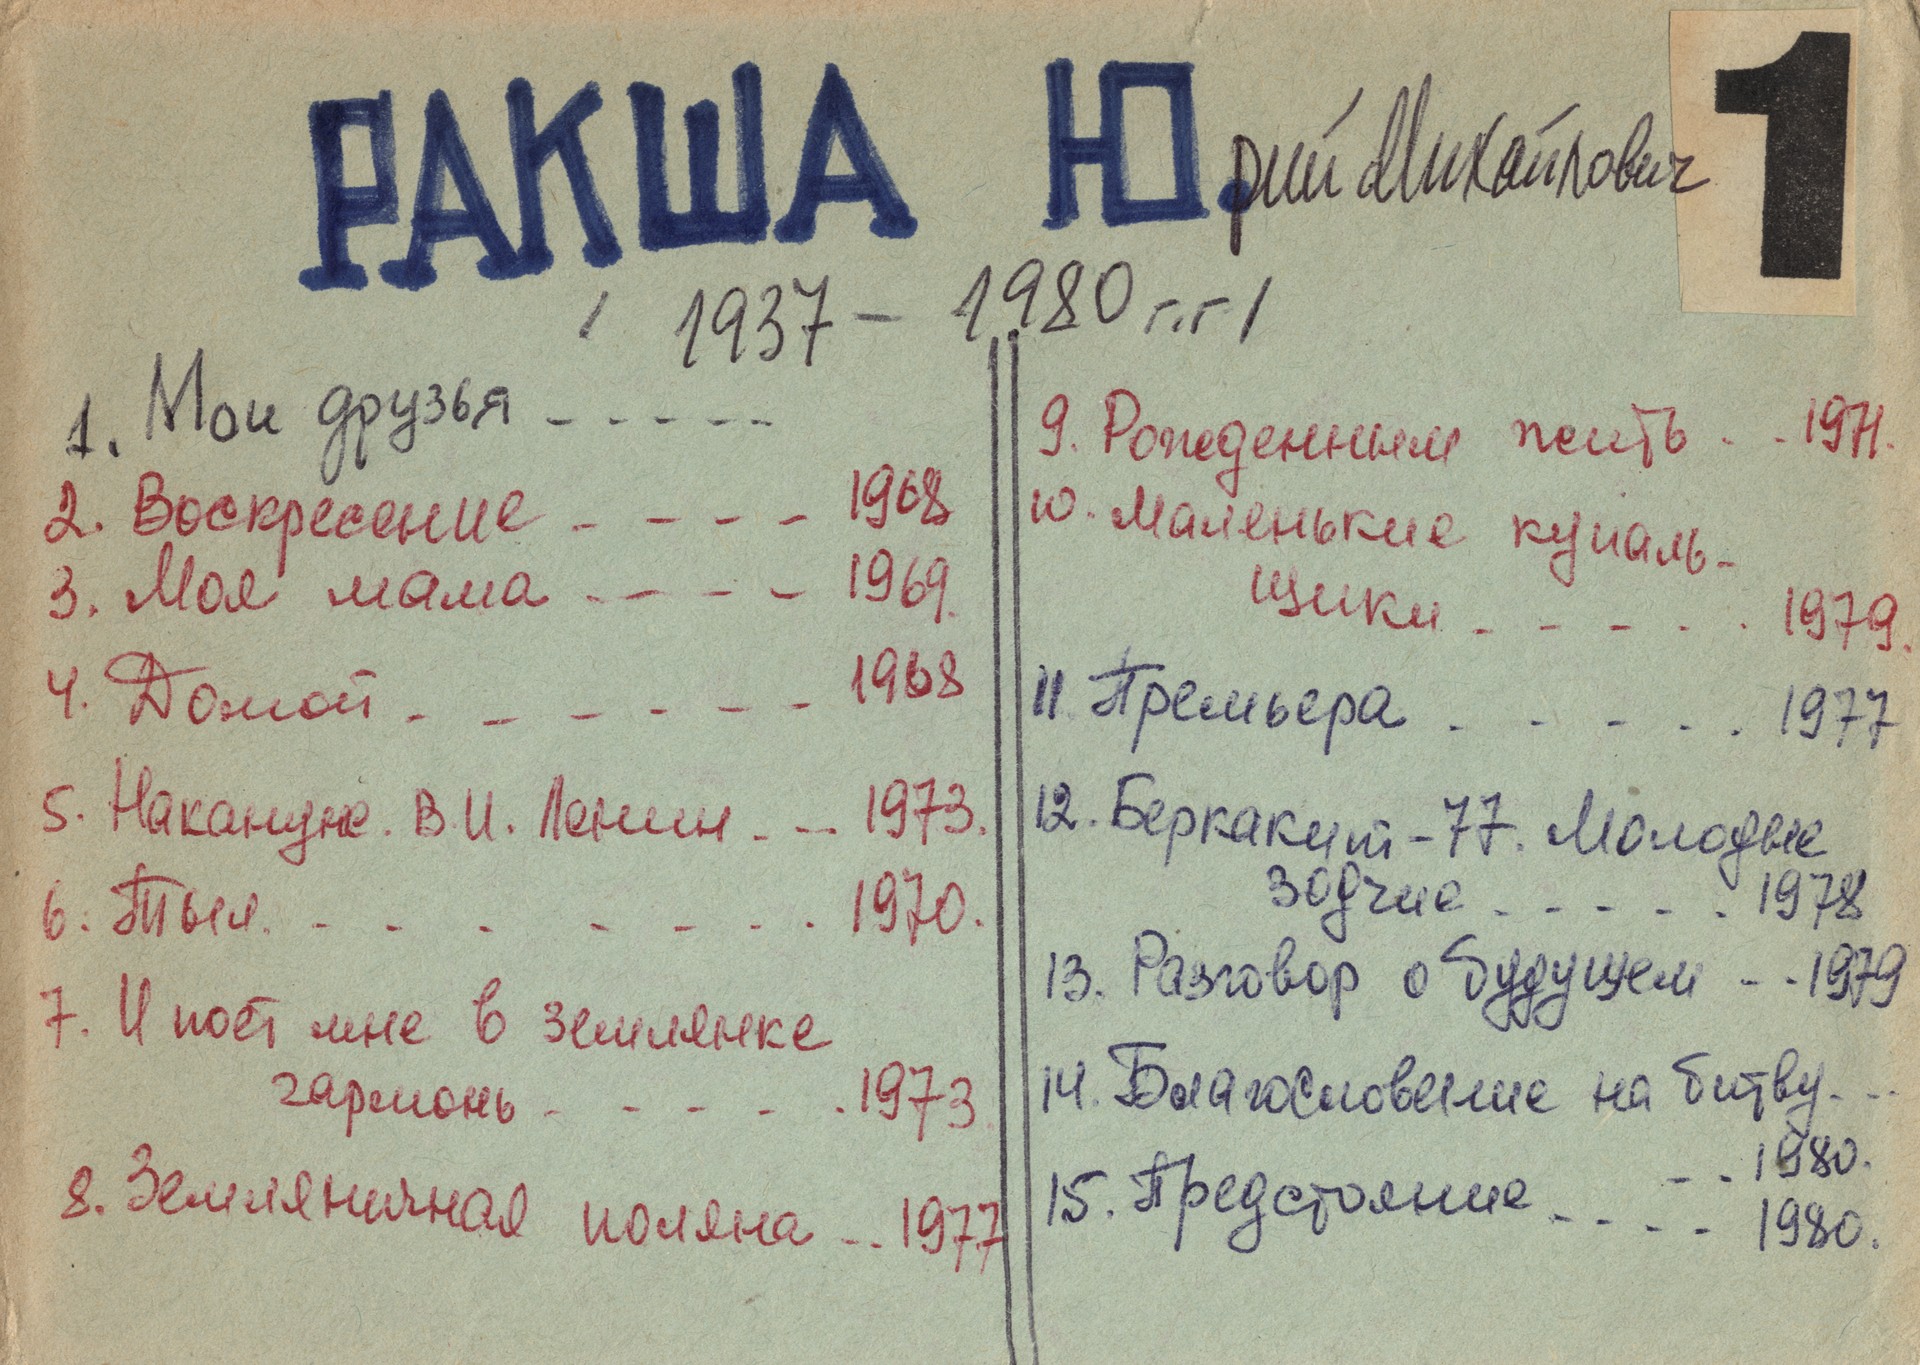 РАКША Ю.рий Михайлович
1
/ 1937 – 1980 г.г /
1. Мои друзья - - - - -
2. Воскресение - - - - 1968
3. Моя мама - - - - 1969.
4. Домой - - - - - - 1968
5. Накануне. В.И. Ленин - - 1973.
6. Тыл. - - - - - - - 1970.
7. И поёт мне в землянке
гармонь - - - - - 1973
8. Земляничная поляна - - 1977
9. Рожденным жить - - 1971.
10. Маленькие купаль-
щики - - - - - 1979.
11. Премьера - - - - - 1977
12. Беркакит-77. Молодые
зодчие - - - - - 1978
13. Разговор о будущем - - 1979
14. Благословение на битву - - -
- - 1980.
15. Предстояние - - - - 1980.